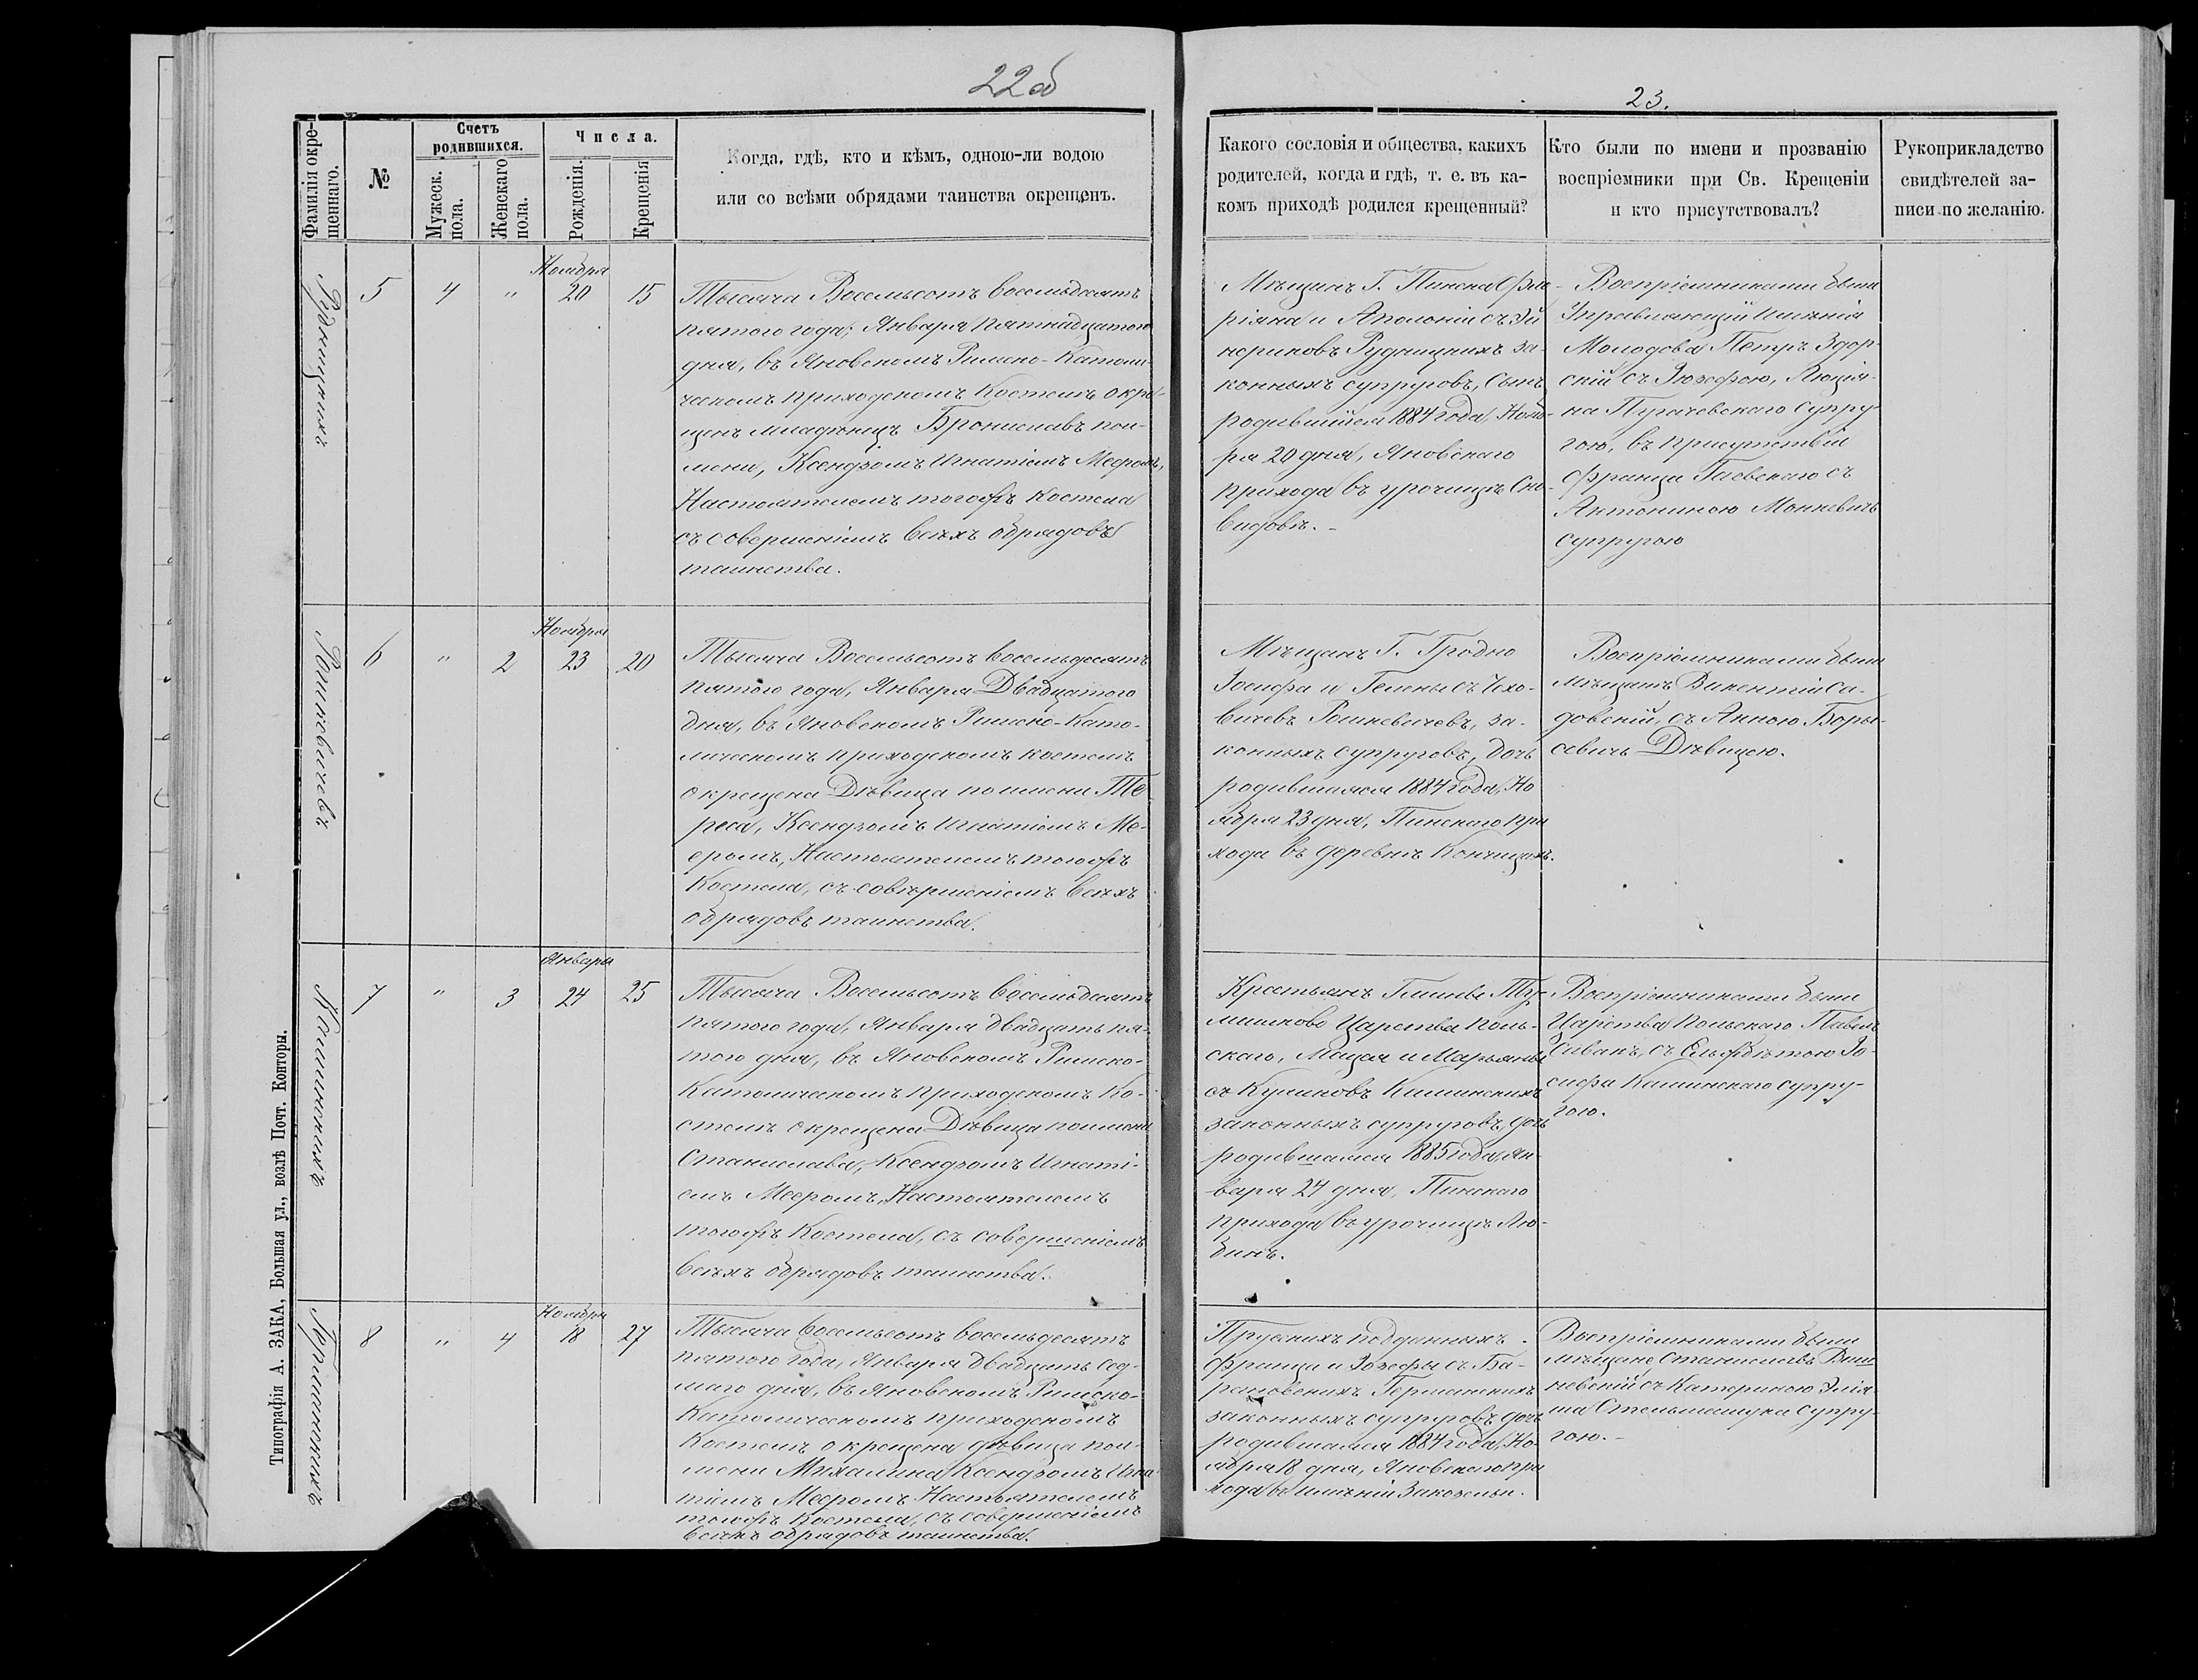 22б
23.
Фамилія окре-
щеннаго.
№
Счетъ
родившихся.
Мужеск.
пола.
Женскаго
пола.
Числа.
Рожденія.
Крещенія
Когда, гдѣ, кто и кѣмъ, одною-ли водою
или со всѣми обрядами таинства окрещенъ.
Какого сословія и общества, какихъ
родителей, когда и гдѣ, т. е. въ ка-
комъ приходѣ родился крещенный?
Кто были по имени и прозванію
воспріемники при Св. Крещеніи
и кто присутствовалъ?
Рукоприкладство
свидѣтелей за-
писи по желанію.
Рудницкихъ
5
4
"
Ноября
20
15
Тысяча Восемьсотъ восемьдесятъ
пятого года, Января пятнадцатого
дня, въ Яновскомъ Римско-Католи-
ческомъ приходскомъ Костелѣ окре-
щенъ младенецъ Брониславъ пои-
мени, Ксендзомъ Игнатіемъ Меером,
Настоятелемъ тогожъ костела
съ совершеніемъ всѣхъ обрядовъ
таинства.
Мѣщанъ Г. Пинска Фло-
ріяна и Аполоніи съ Эй
нориковъ Рудницкихъ за-
конныхъ супруговъ, сынъ
родившійся 1884 года, Нояб-
ря 20 дня, Яновскаго
прихода въ урочищѣ Сно-
видовѣ.-
Воспріемниками были
Управляющій имѣнія
Молодова Петръ Здор-
скій съ Іюзефою, Люція-
на Пугачевскаго супру-
гою, въ присутствіи
Франца Гаевскаго съ
Антониною Монкевичъ
супругою
Рошкевичевъ
6
"
2
Ноября
23
20
Тысяча Восемьсотъ восемьдесятъ
пятого года, Января Двадцатого
дня, въ Яновскомъ Римско-Като-
лическомъ приходскомъ костелѣ
окрещена Дѣвица по имени Те-
реса, Ксендзомъ Игнатіемъ Ме-
еромъ, Настоятелемъ тогожъ
Костела, съ совершеніемъ всѣхъ
обрядовъ таинства.
Мѣщанъ Г. Гродно
Іосифа и Гелены съ Чехо-
вичевъ Рошкевичевъ, за-
конныхъ супруговъ, дочь
родившаяся 1884 года, Но
ября 23 дня, Пинскаго при
хода въ деревнѣ Кончицахъ.
Воспріемниками были
мѣщанъ Викентій Са-
довскій, съ Анною Боры-
севичъ Дѣвицею.
Каминскихъ
7
"
3
Января
24
25
Тысяча Восемьсотъ восемьдесятъ
пятого года, Января двадцать пя-
того дня, въ Яновскомъ Римско-
Католическомъ приходскомъ Ко-
стелѣ окрещена Дѣвица поимени
Станислава, Ксендзомъ Игнаті-
емъ Мееромъ, Настоятелемъ
тогожъ Костела, съ совершеніемъ
всѣхъ обрядовъ таинства.
скаго, Мацея и Марьянны
съ Куликовъ Каминскихъ
законныхъ супруговъ, дочь
родившаяся 1885 года, Ян-
варя 24 дня, Пинскаго
прихода въ урочищѣ Лю-
бинѣ.
Воспріемниками были
Царства Польскаго Павелъ
съ Ельжбѣтою Іо-
сифа Каминскаго супру-
гою.
Германскихъ
8
"
4
Ноября
18
27
Тысяча восемьсотъ восемьдесятъ
пятого года, Января двадцать сед-
маго дня, въ Яновскомъ Римско-
Католическомъ приходскомъ
Костелѣ окрещена дѣвица пои-
мени Михалина Ксендзомъ Игна
тіемъ Мееромъ Настоятелемъ
тогожъ Костела, съ совершеніемъ
всѣхъ обрядовъ таинства.
Прускихъ подданныхъ
Франца и Іозефы съ Ба-
рановскихъ Германскихъ
законныхъ супруговъ дочь
родившаяся 1884 года, Но-
ября 18 дня, Яновскаго при
хода въ имѣніи Закозели.
Воспріемниками были
мѣщане Станиславъ Виш
невскій съ Катериною
Стельмащука супру-
гою.-
Типографія А. ЗАКА, Большая ул., возлѣ Почт. Конторы.